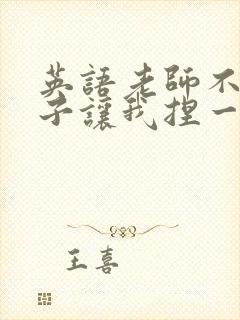 英語老師不
子讓我捏一
王喜